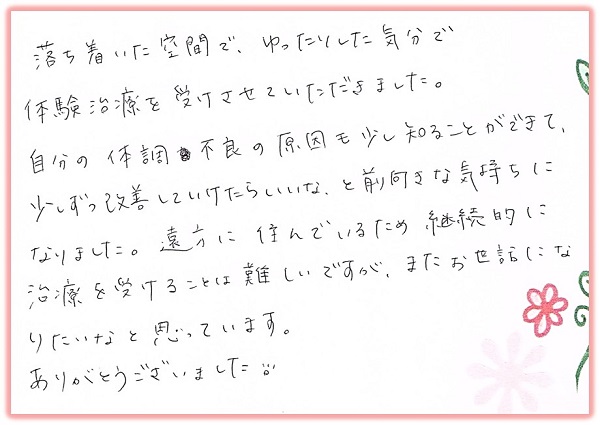 落ち着いた空間で、ゆったりした気分で
体験治療を受けさせていただきました。
自分の体調不良の原因も少し知ることができて、
少しずつ改善していけたらいいな、と前向きな気持ちに
なりました。遠方に住んでいるため継続的に
治療を受けることは難しいですが、またお世話にな
りたいなと思っています。
ありがとうございました